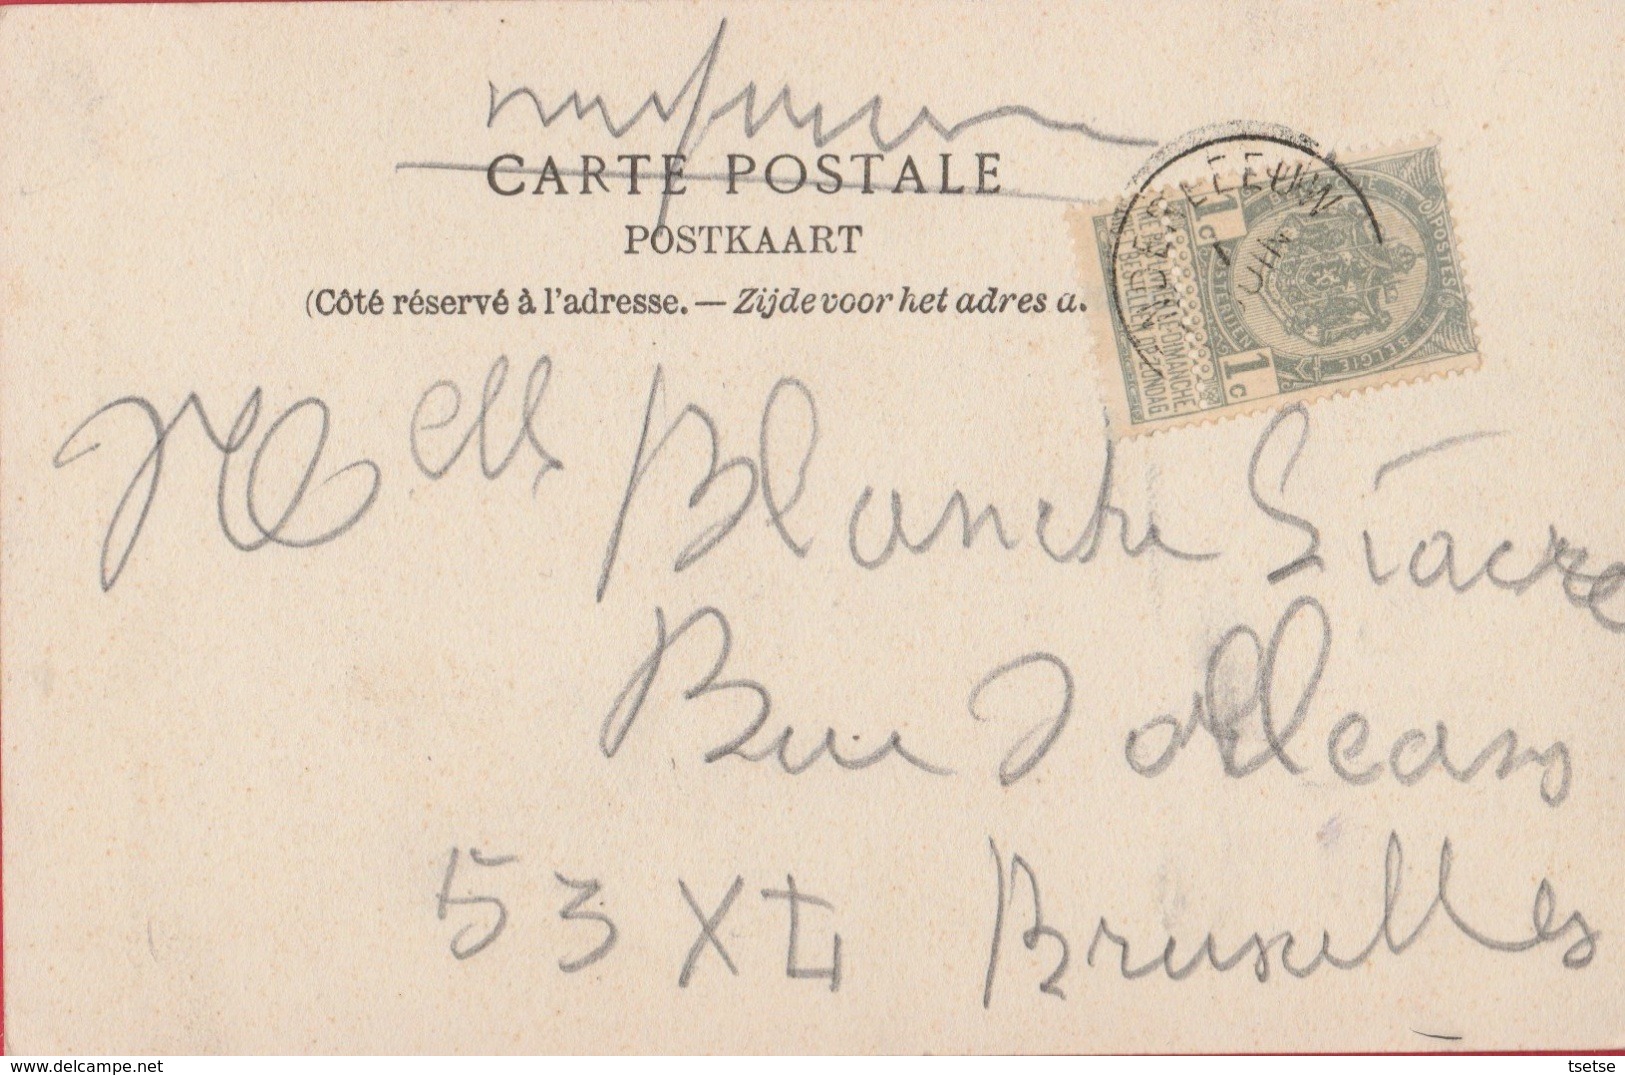 CARTE POSTALE
POSTKAART
(Côté réservé à l'adresse. — Zijde voor het adres a.
LEEUW
JUIN
POSTES
1 c
1 c
BELGIE
NE PAS LIVRER LE DIMANCHE
NIET BESTELLEN OP ZONDAG
Melle Blanche
Rue d orleans
53 XL Bruxelles
www.delcampe.net
tsetse